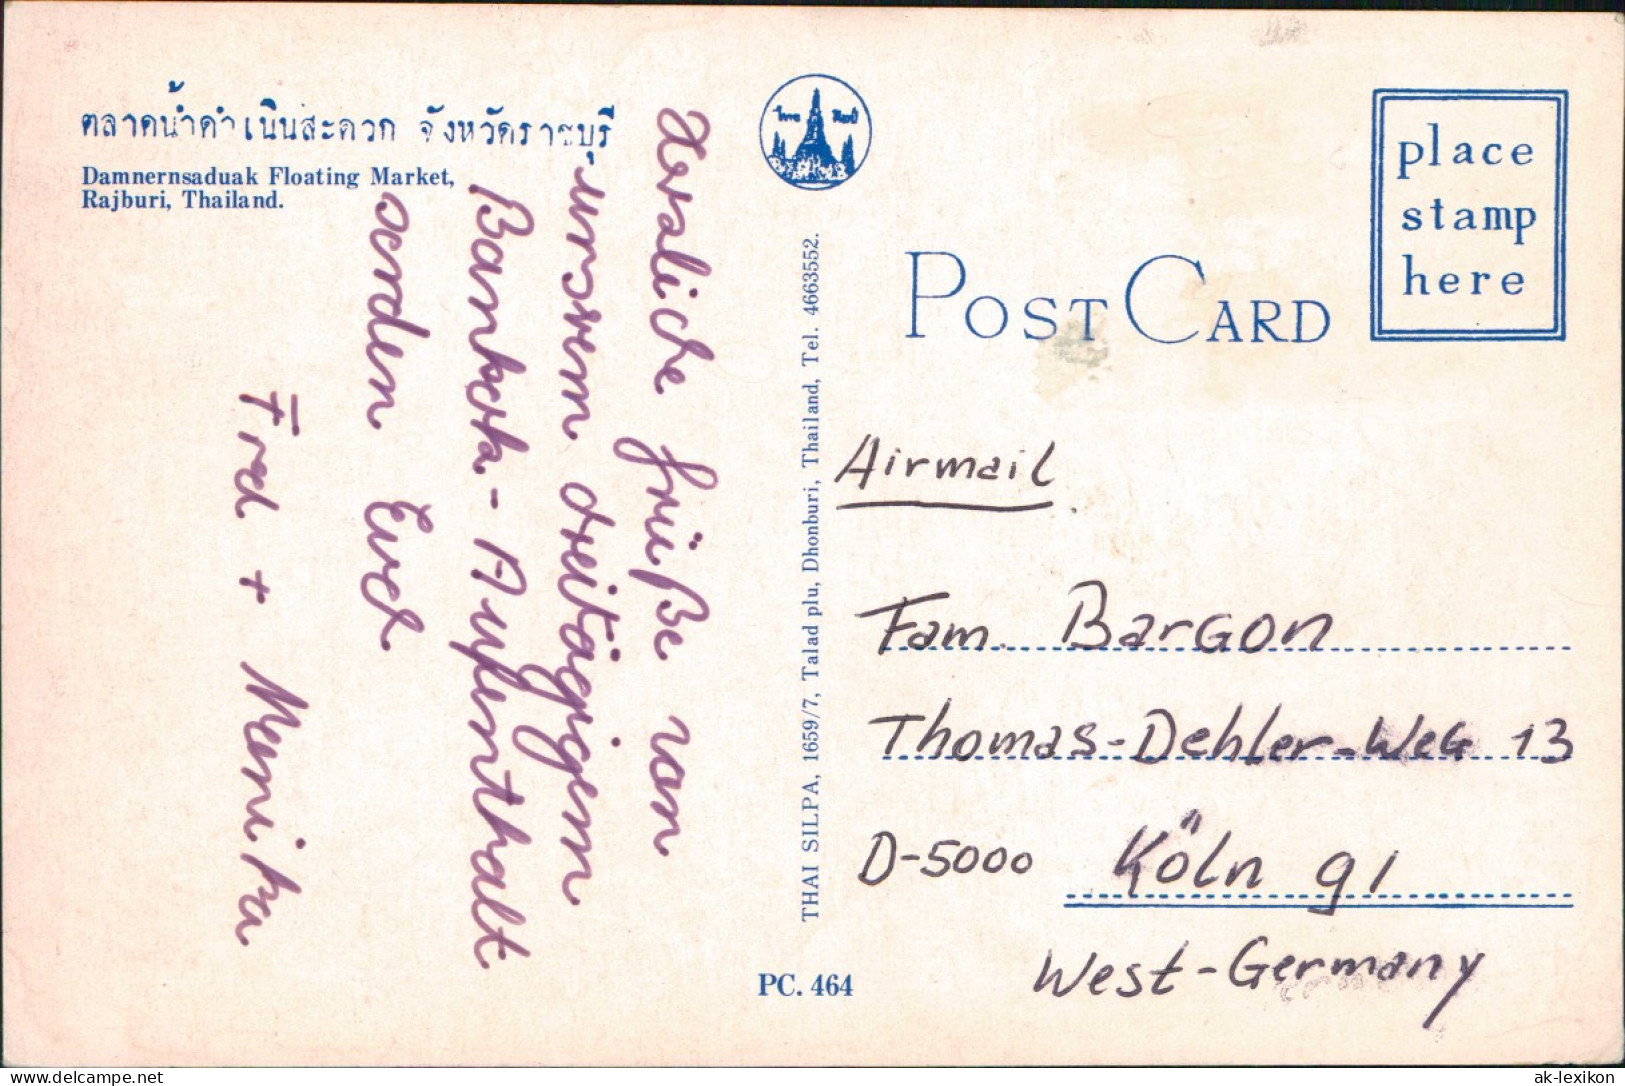 ตลาดน้ำดำเนินสะดวก จังหวัดราชบุรี
Damnernsaduak Floating Market,
Rajburi, Thailand.
Herzliche Grüße von
unserem dreitägigem
Bankota-Aufenthalt
senden Euch
Fred + Monika
ไทย ศิลป์
THAI SILPA, 1659/7, Talad plu, Dhonburi, Thailand, Tel. 4663552.
PC. 464
POST CARD
place
stamp
here
Airmail
Fam. Bargon
Thomas-Dehler-Weg 13
D-5000 Köln 91
West-Germany
www.delcampe.net
ak-lexikon